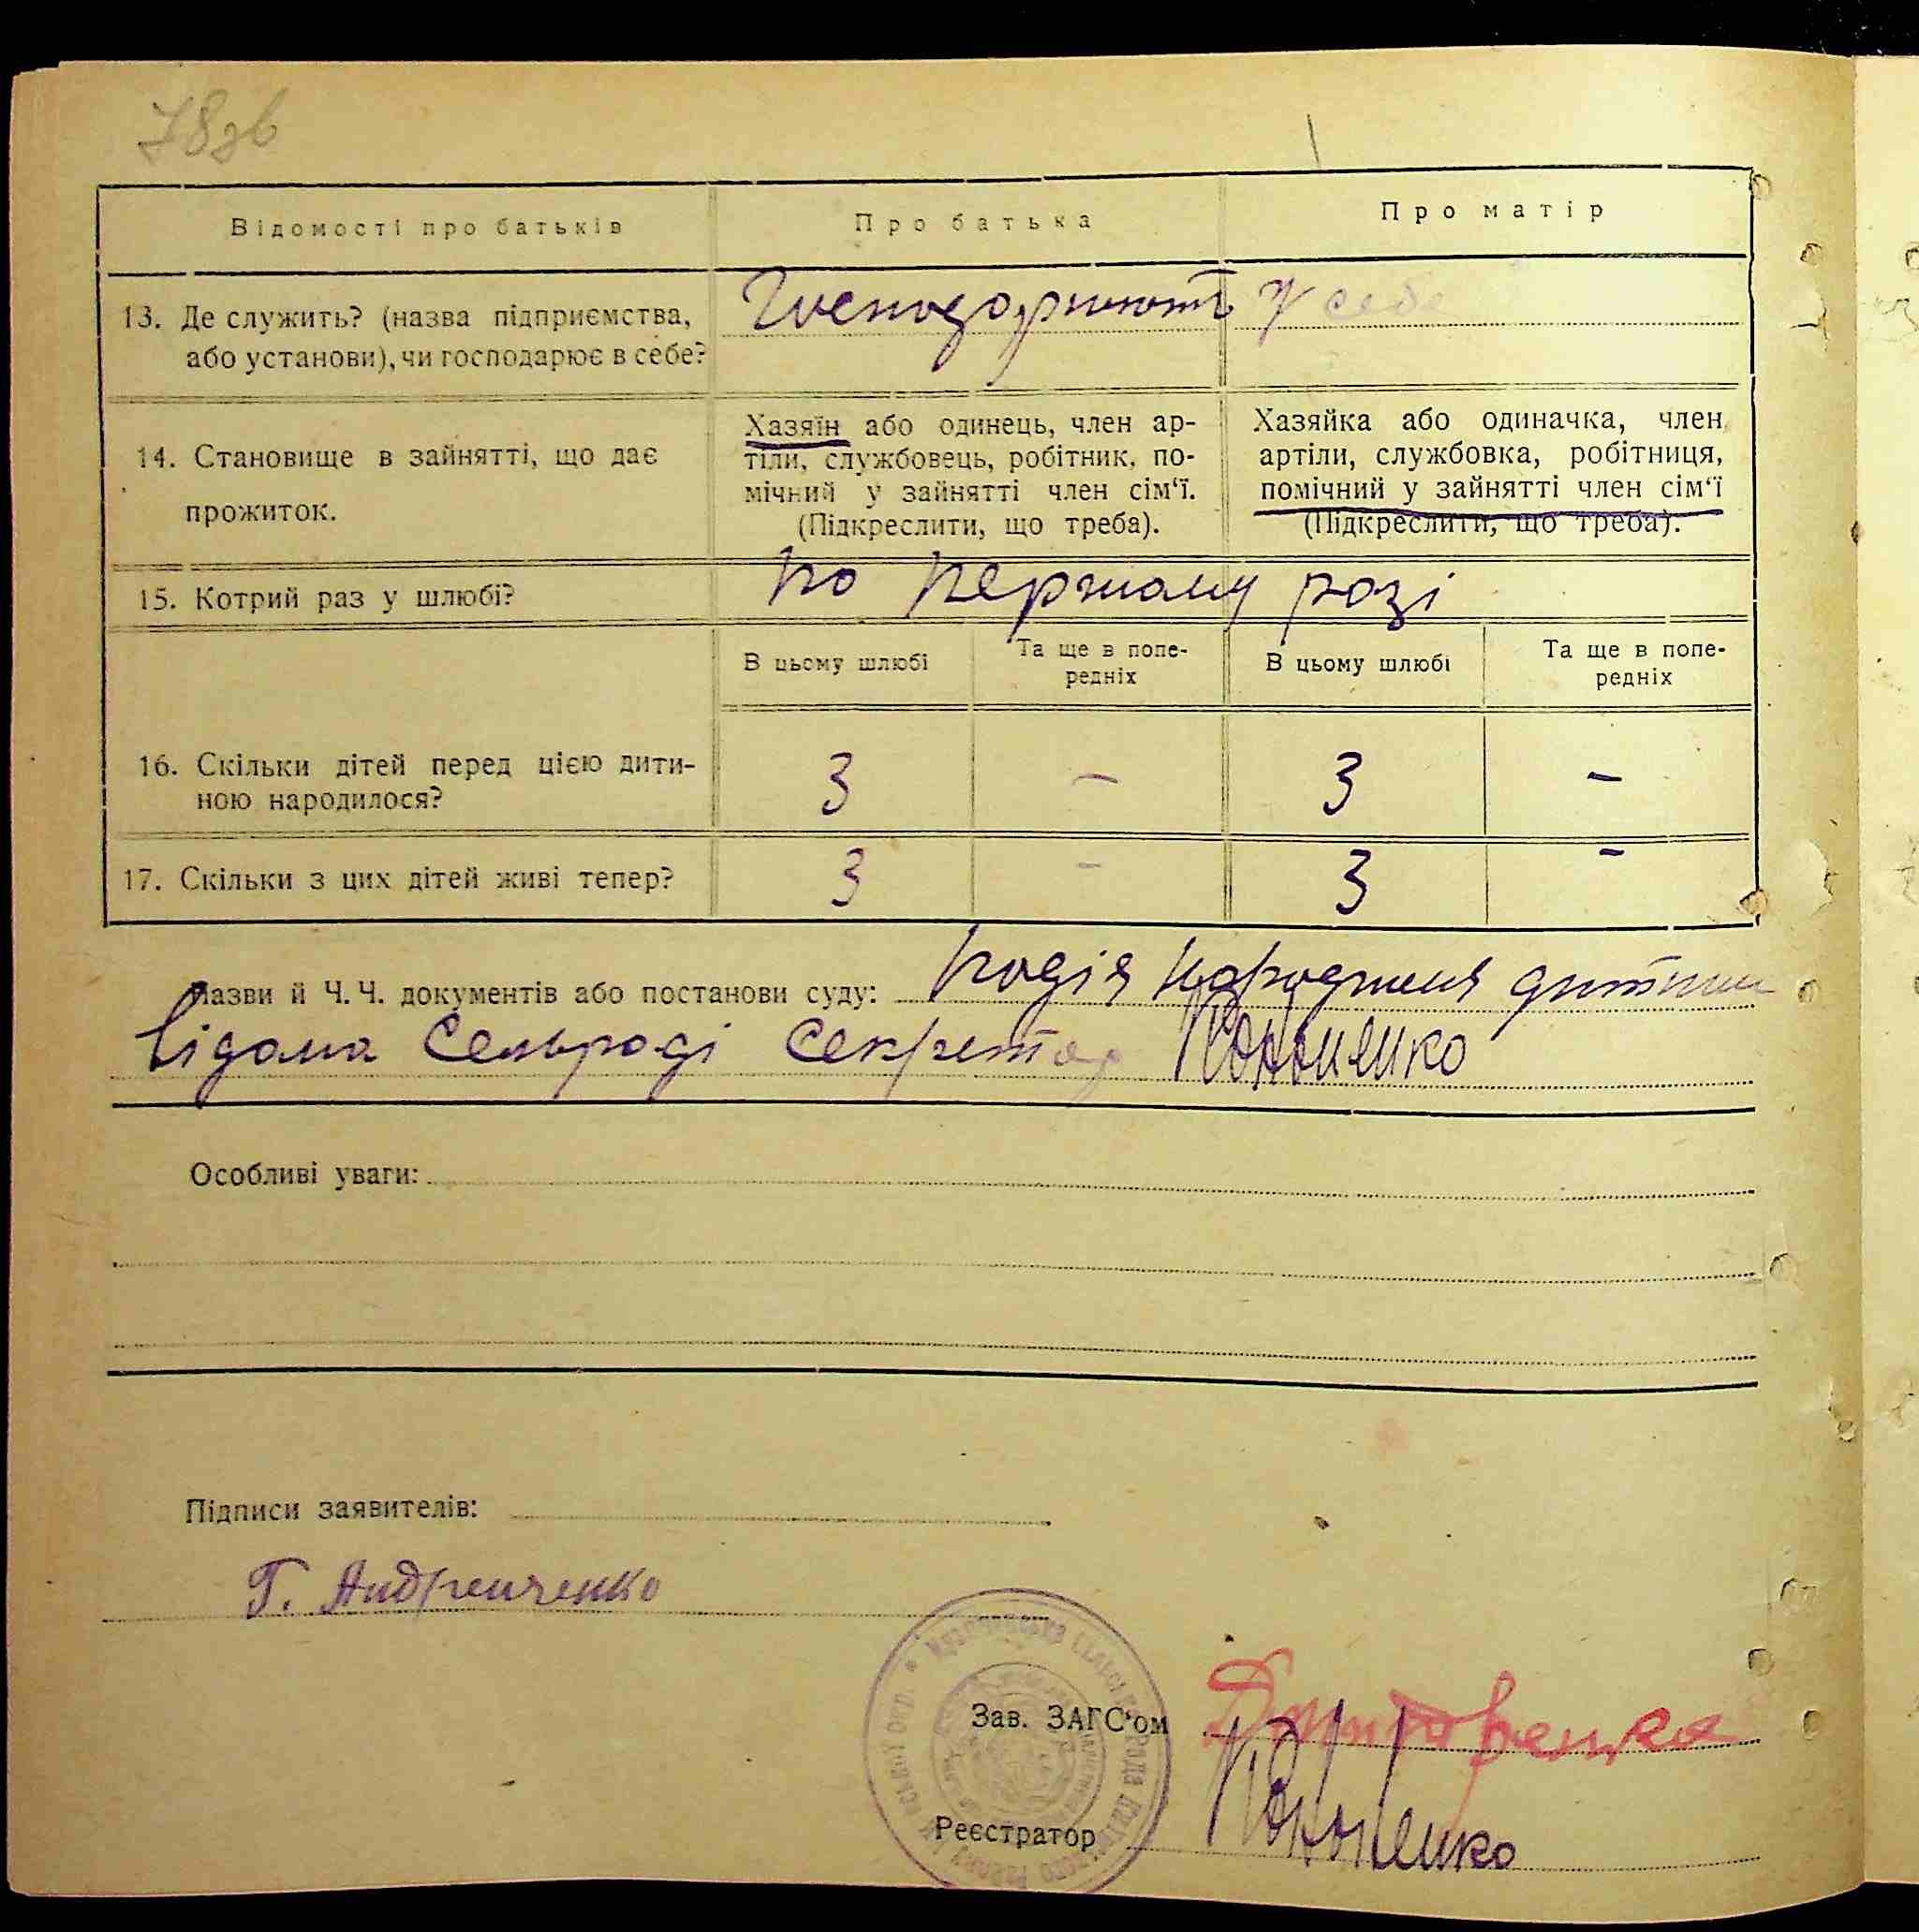 78зв
Відомості про батьків
Про батька
Про матір
13. Де служить? (назва підприємства,
або установи), чи господарює в себе?
Господорюють у себе
14. Становище в зайнятті, що дає
прожиток.
Хазяїн або одинець, член ар-
тіли, службовець, робітник, по-
мічний у зайнятті член сім‘ї.
(Підкреслити, що треба).
Хазяйка або одиначка, член
артіли, службовка, робітниця,
помічний у зайнятті член сім‘ї
(Підкреслити, що треба).
15. Котрий раз у шлюбі?
по першому разі
В цьому шлюбі
Та ще в попе-
редніх
В цьому шлюбі
Та ще в попе-
редніх
16. Скільки дітей перед цією дити-
ною народилося?
3 – 3 –
17. Скільки з цих дітей живі тепер?
3 – 3 –
Назви й Ч. Ч. документів або постанови суду: подія народженя дитини
відома Сельраді Секретар Кононенко
Особливі уваги:
Підписи заявителів:
Г. Андрейченко
Зав. ЗАГС‘ом
Реєстратор Кононенко